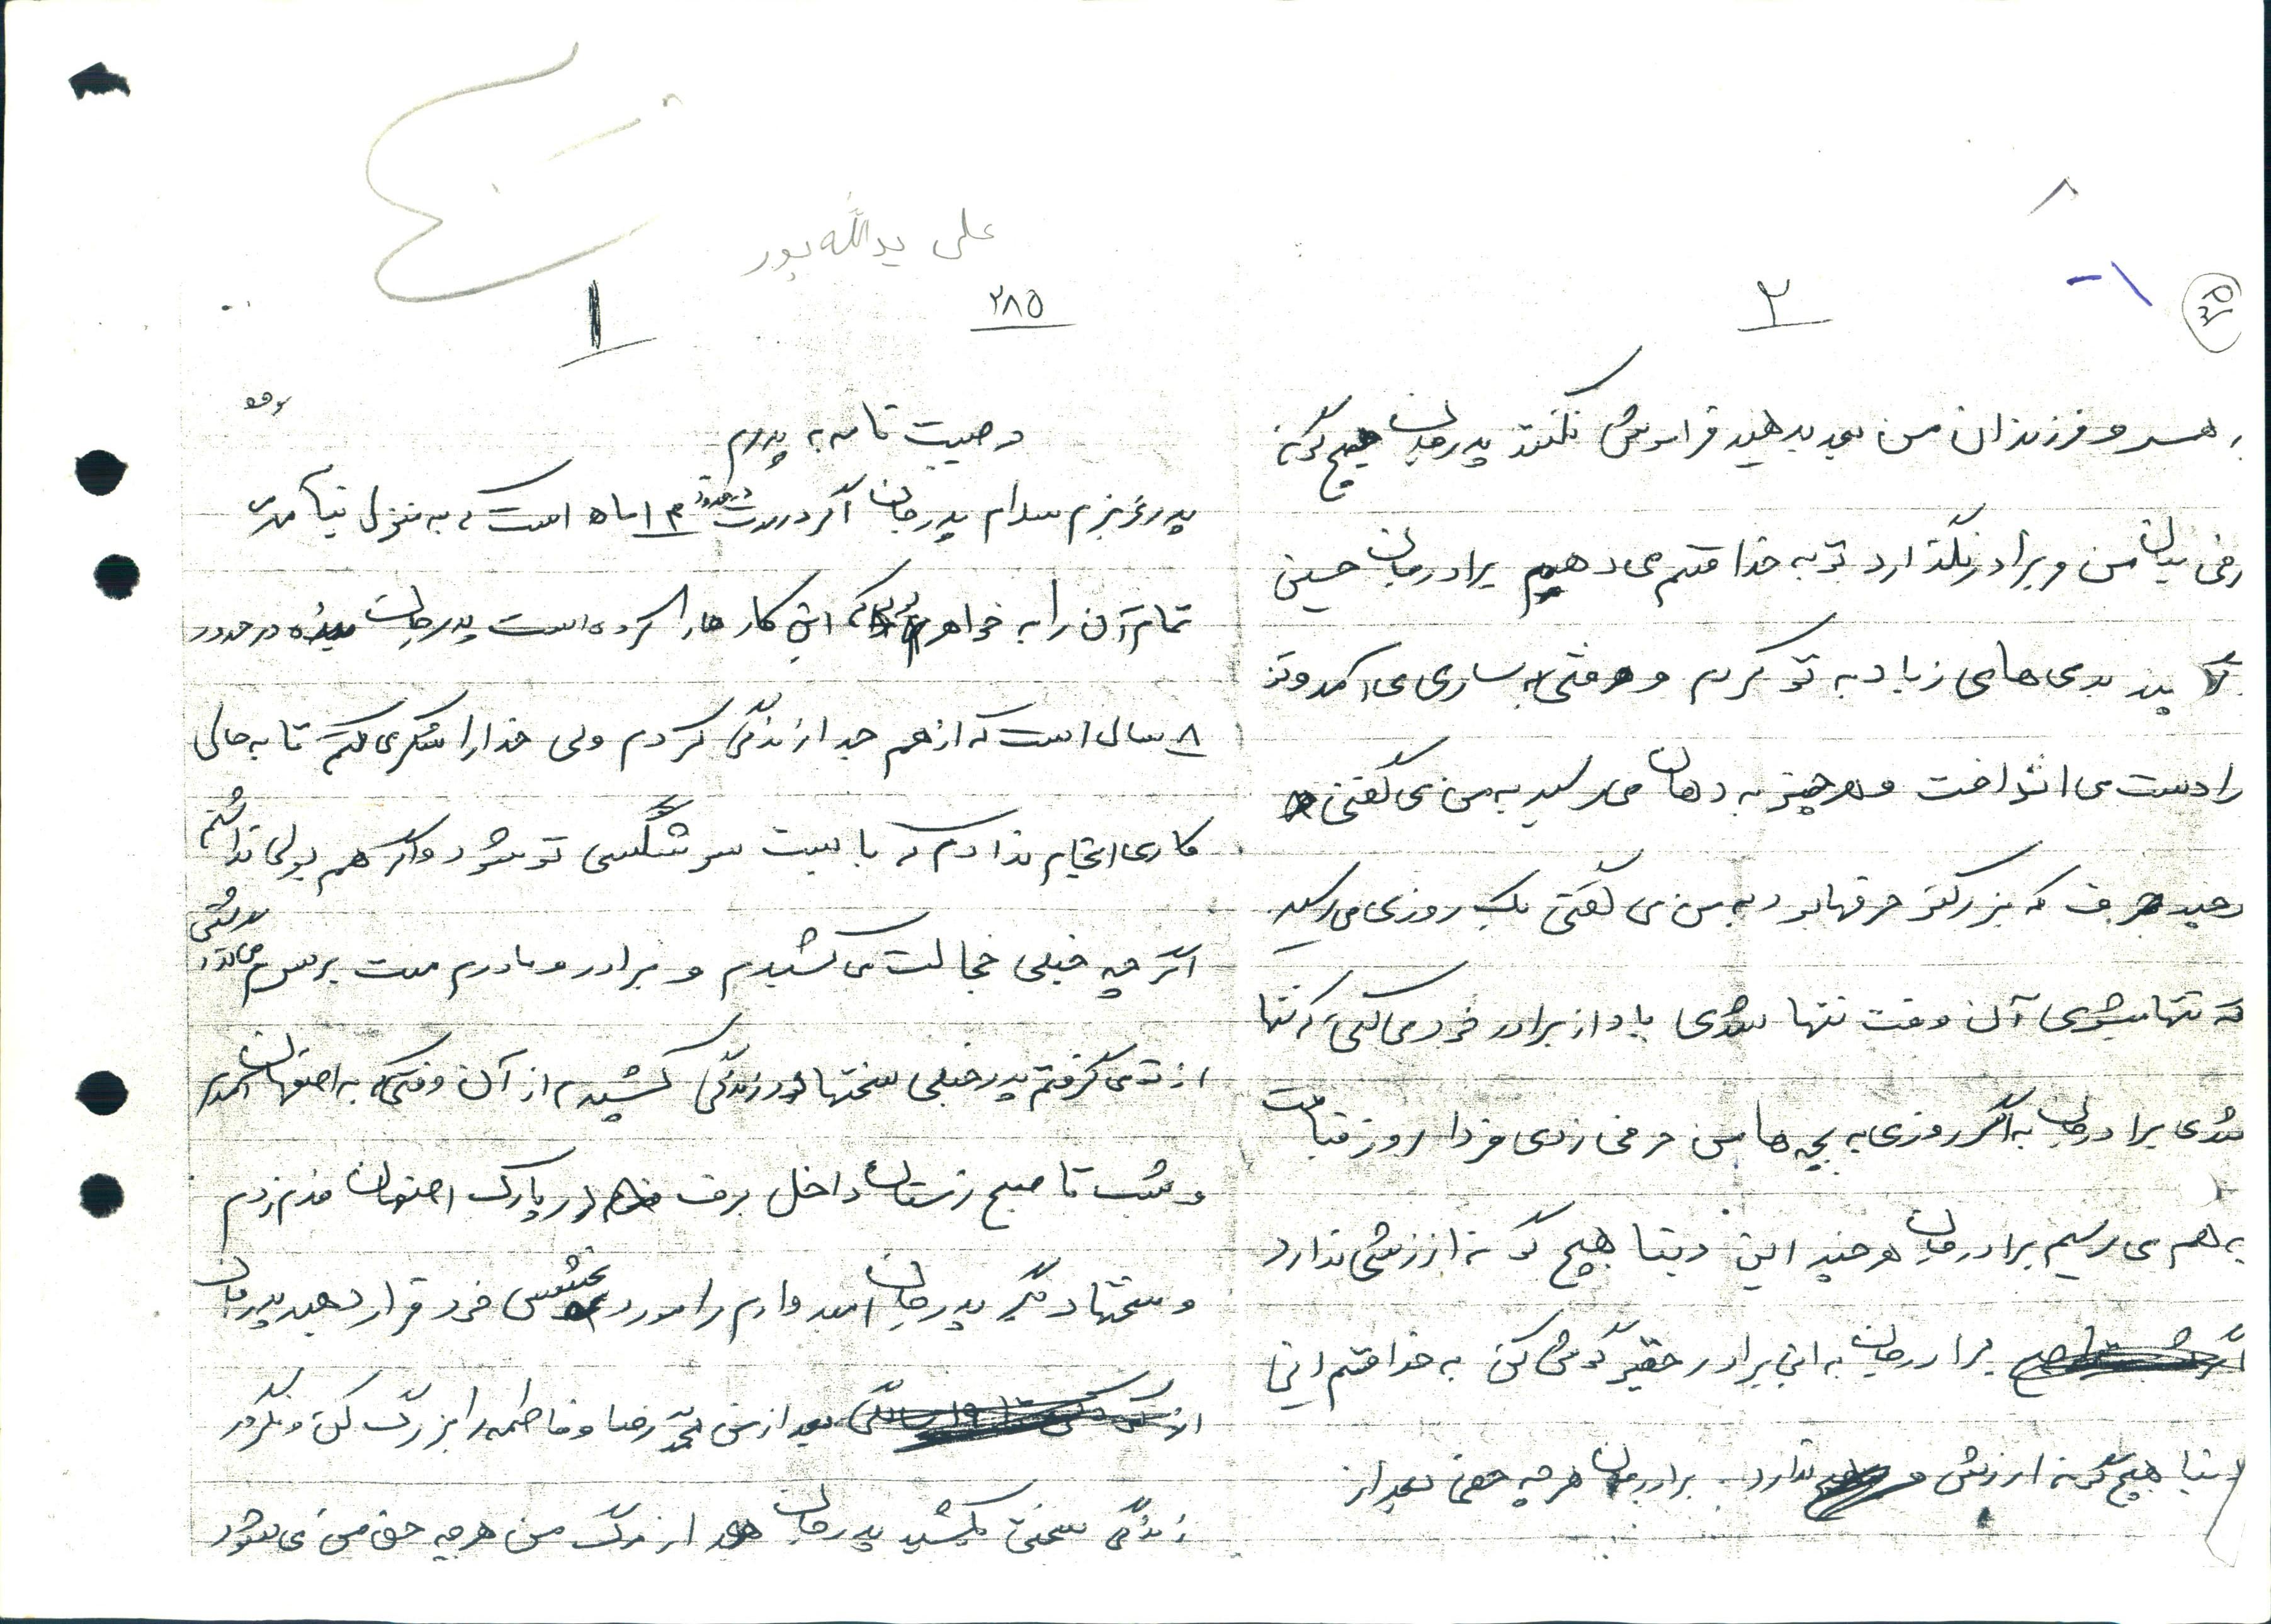 علی یدالله پور
۲۸۵
۱
وصیت نامه به پدرم
پدر عزیزم سلام پدر جان اگر در مدت در حدود ماه است که به منزل نیامدم
تمام آن را به خواهر این کارها را کرده است پدر جان بنده در حدود
۸ سال است که از هم جدا زندگی کردم ولی خدا را شکر می کنم تا به حالی
کاری انجام ندادم که باعث سرشکسی تو شود و اگر هم پولی نداشتم
اگر چه خیلی خجالت می کشیدم و برادر و مادرم منت برسرم می
از تو می گرفتم پدر خیلی سختها در زندگی کشیدم از آن وقتیکه به اصفهان آمدم
و شب تا صبح زمستان داخل برف در پارک اصفهان قدم زدم
و سختها دیگر پدر جان امیدوارم را مورد بخشش خود قرار دهید پدر جان
بعد از من محمد رضا و فاطمه را بزرگ کن و نگذر
زندگی سختی بکشید پدر جان بعد از مرگ من هر چه حق من می شود
۲
۳۵
به همسر و فرزندان من بعد بدهید فراموش نکنند پدر جان هیچ گونه
رفی میان من و برادر نگذارد تو به خدا قسم می دهم برادر جان حسین
بدی های زیاد به تو کردم و وقتی به ساری می آمد و تو
را دست می انداخت و هر چیز به دهان می رسید به من می گفتی
و چند حرف که بزرگتر حرفها بود به من می گفتی یک روزی می رسد
که تنها میشوی آن وقت تنها شدی یاد از برادر خود می کنی که تنها
شدی برادر جان اگر روزی به بچه ها من حرفی زدی فردا روز قیامت
به هم می رسیم برادر جان هر چند این دنیا هیچ گونه ارزشی ندارد
برادر جان به این برادر حقیر گوش کن به خدا قسم این
دنیا هیچ گونه ارزش ندارد. برادر جان هر چه حقی بعد از